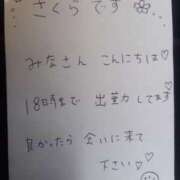 さくらです
みなさん こんにちは♡
18時まで 出勤してます♡
良かったら 会いに来て
下さい♡